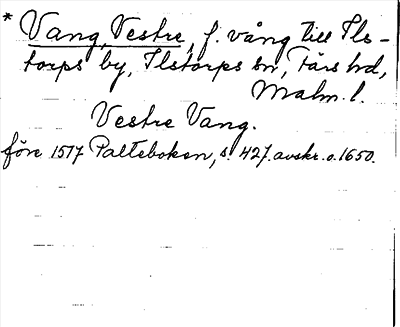 * Vang, Vestre, f. vång till Ils-
torps by, Ilstorps sn, Färs hd,
Malm. l.
Vestre Vang.
före 1517 Palteboken, s. 427. avskr. o. 1650.